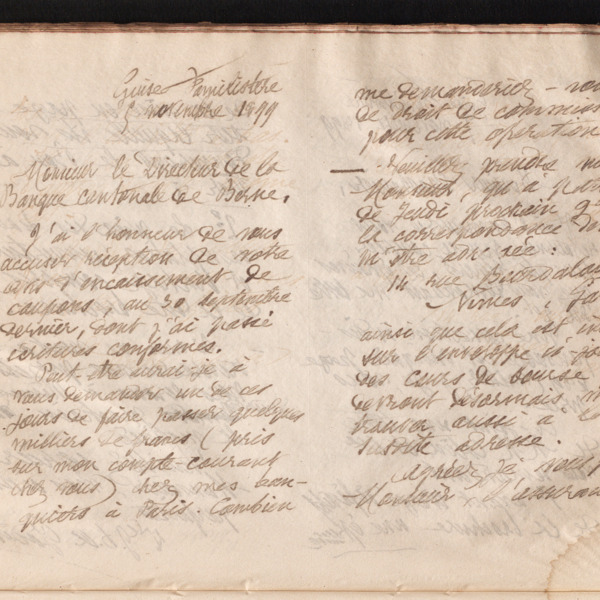 Guise Familistère
5 novembre 1899
Monsieur le Directeur de la
Banque cantonale de Berne,
J'ai l'honneur de vous
accuser réception de votre
avis d'encaissement de
coupons, au 30 septembre
dernier, dont j'ai passé
écritures conformes.
Peut-être aurai-je à
vous demander un de ces
jours de faire passer quelques
milliers de francs (pris
sur mon compte-courant
chez vous) chez mes ban-
quiers à Paris. Combien
me demanderiez-vous
de droit de commiss
pour cette opération
— Veuillez prendre no
Monsieur, qu'à part
de Jeudi prochain 9
la correspondance do
m'être adressée :
14 rue Bourdalou
Nîmes, Ga
ainsi que cela est in
sur l'enveloppe ci-jo
des cours de bourse
devront désormais m
trouver aussi à
susdite adresse.
Agréez, je vous
Monsieur, l'assuran